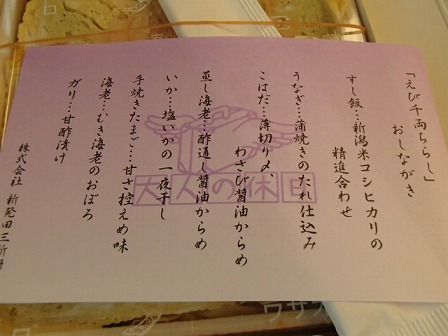 「えび千両ちらし」
おしながき
すし飯…新潟米コシヒカリの
精進合わせ
うなぎ…蒲焼きのたれ仕込み
こはだ…薄切り〆、
わさび醤油からめ
蒸し海老…酢通し醤油からめ
いか…塩いかの一夜干し
手焼きたまご…甘さ控えめ味
海老…むき海老のおぼろ
ガリ…甘酢漬け
株式会社 新発田三新軒
大人の休日
ワサ